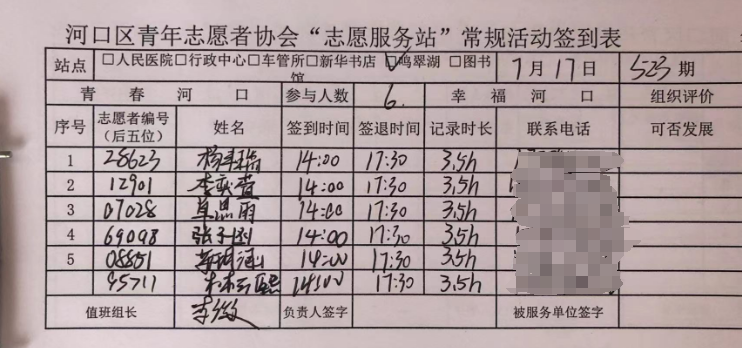 河口区青年志愿者协会“志愿服务站”常规活动签到表
站点 □人民医院□行政中心□车管所□新华书店 □鸣翠湖 □图书馆 7月17日 523期
青春河口 参与人数 6. 幸福河口 组织评价
序号 志愿者编号（后五位） 姓名 签到时间 签退时间 记录时长 联系电话 可否发展
1 28623 14:00 17:30 3.5h
2 12901 14:00 17:30 3.5h
3 07028 14:00 17:30 3.5h
4 69098 张子图 14:00 17:30 3.5h
5 08851 14:00 17:30 3.5h
45711 林云熙 14:00 17:30 3.5h
值班组长 李 负责人签字 被服务单位签字